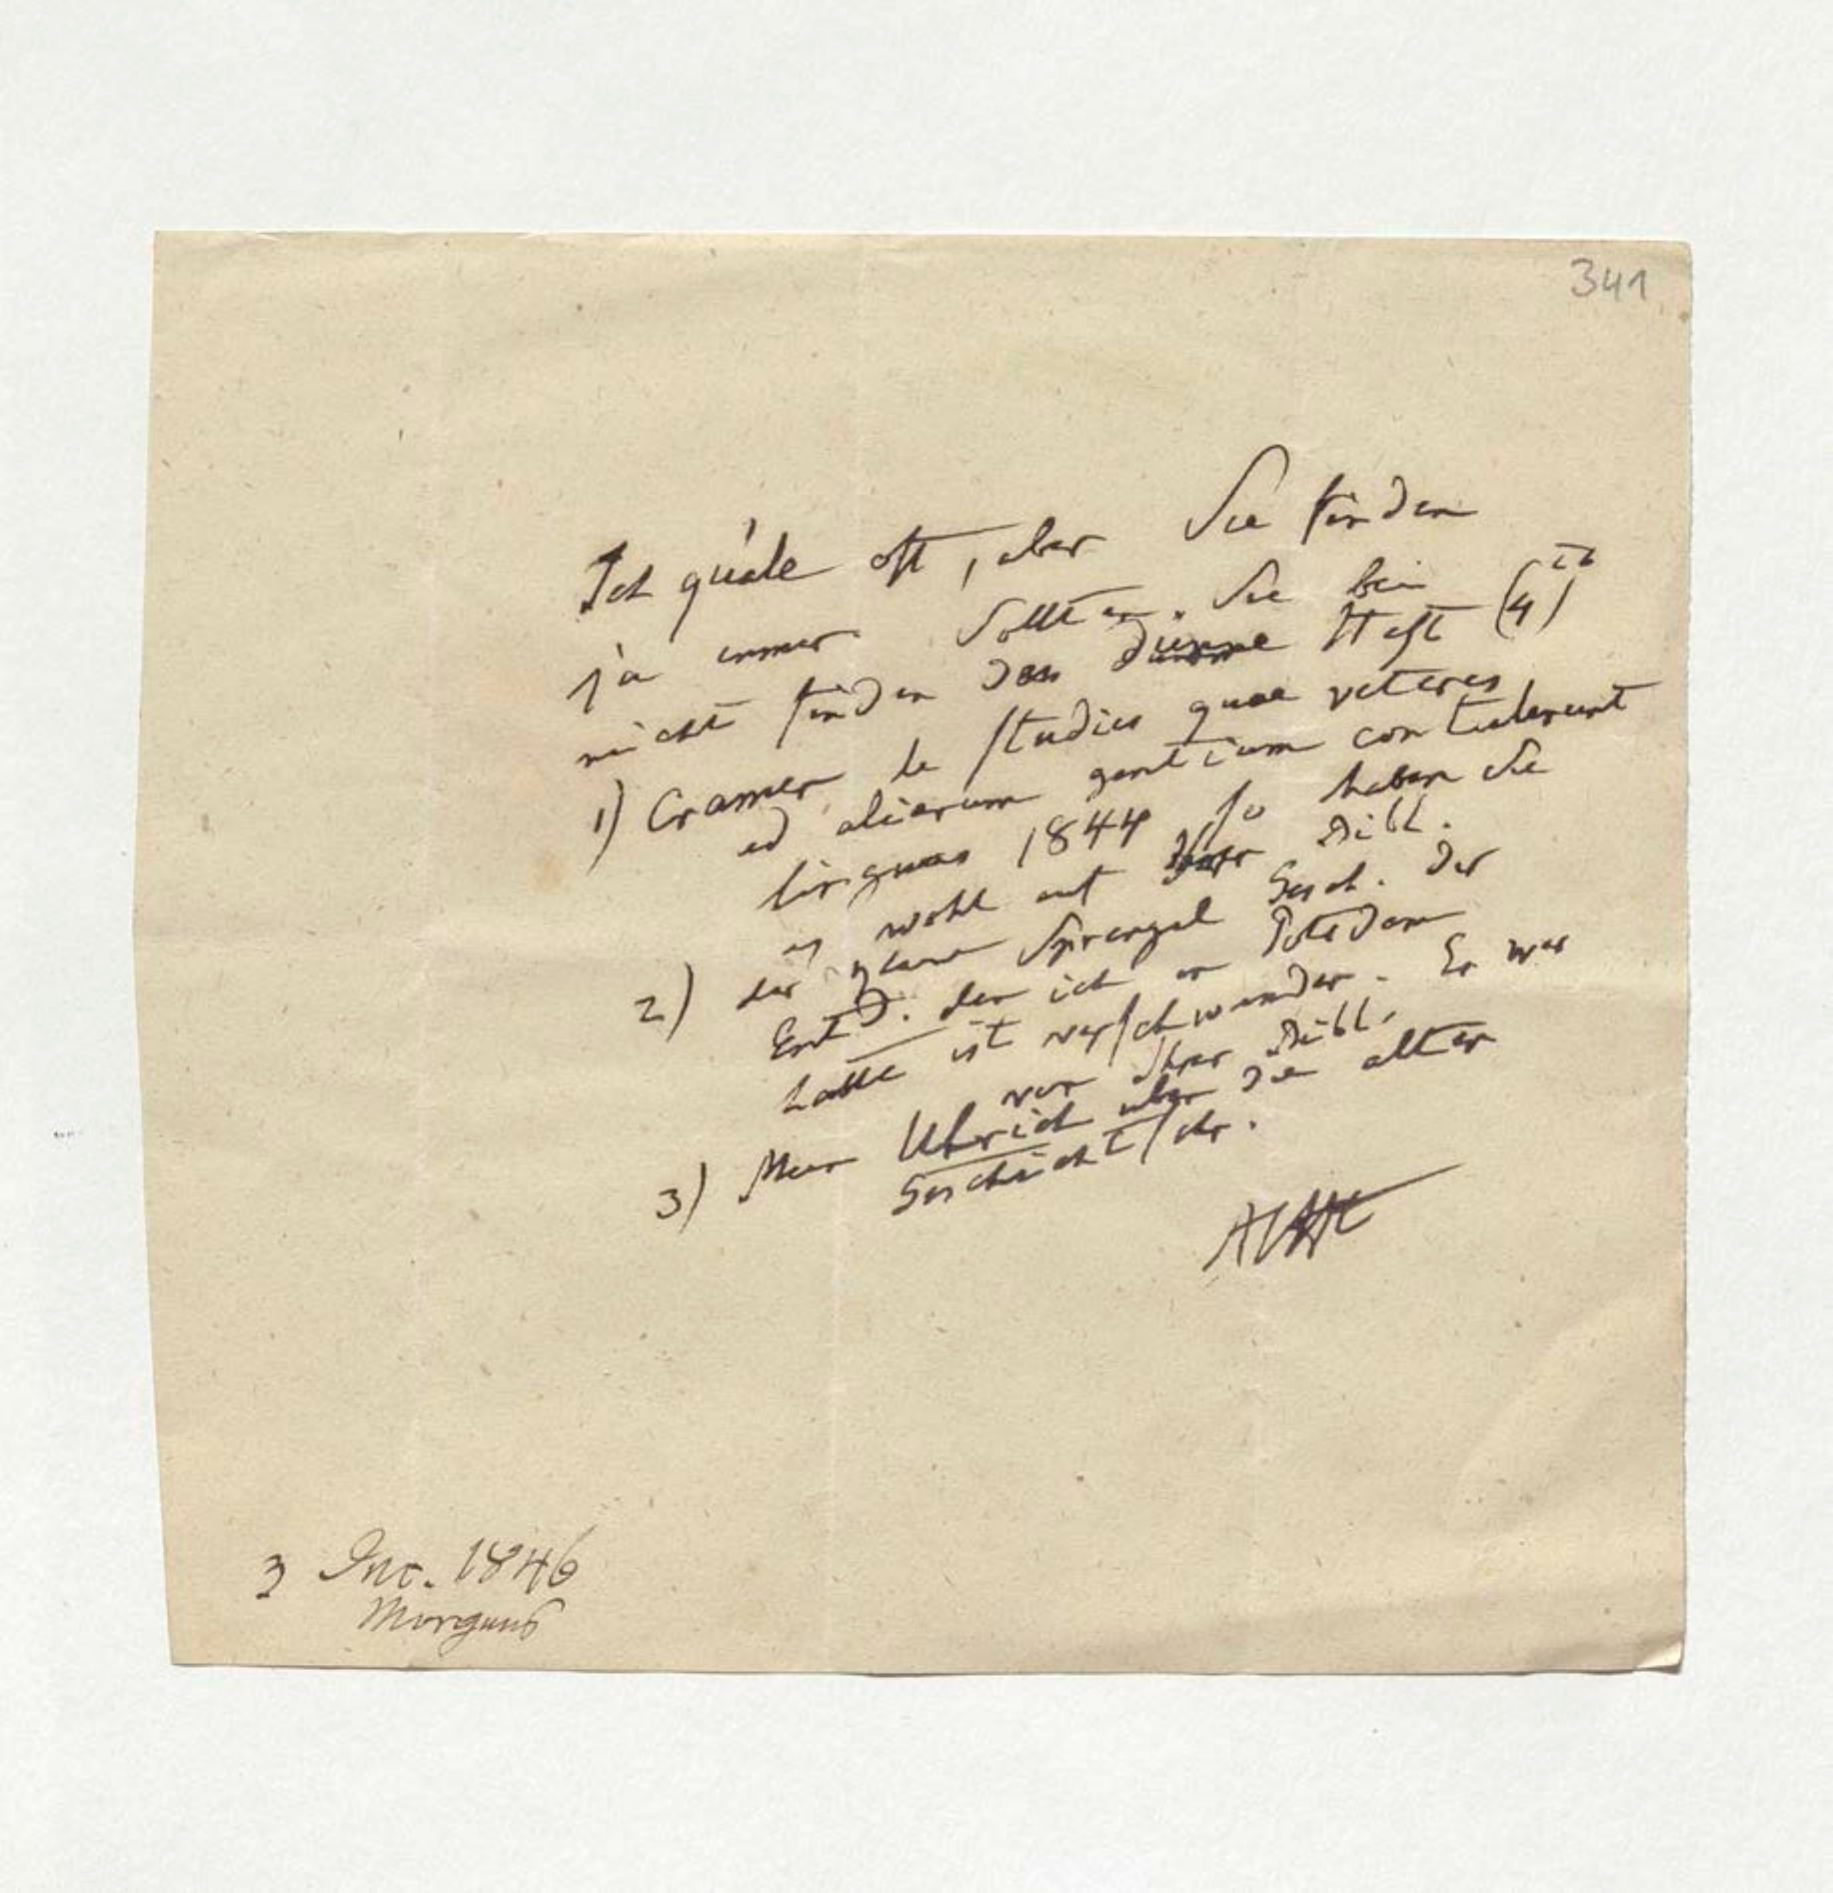 341
Ich quäle oft, aber Sie finden
ja immer. Sollten Sie bei
nicht finden das dünne Heft (4)
1) Cramer de studiis quae veteres
ad aliarum gentium contulerunt
linguas 1844 so haben Sie
es wohl auf der Bibl.
2) der Sprengel Gesch. der
Entd. den ich in Potsdam
hatte ist verschwunden. Er war
von Ihrer Bibl.
3) Mein Ukerich über die alten
Geschichtschr.
AHt
3 Dec. 1846
Morgens